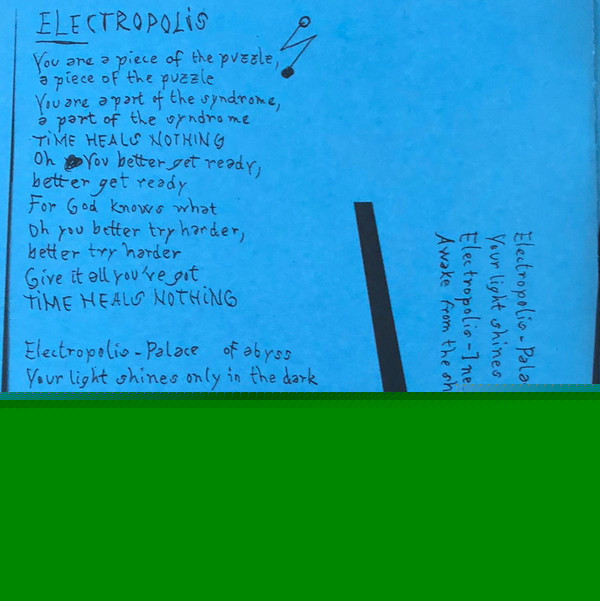 ELECTROPOLIS
You are a piece of the puzzle,
a piece of the puzzle
You are a part of the syndrome,
a part of the syndrome
TIME HEALS NOTHING
Oh You better get ready,
better get ready
For God knows what
Oh you better try harder,
better try harder
Give it all you've got
TIME HEALS NOTHING
Electropolis - Palace of abyss
Your light shines only in the dark
Electropolis - Pala
Your light shines
Electropolis - I ne
Awake from the sh